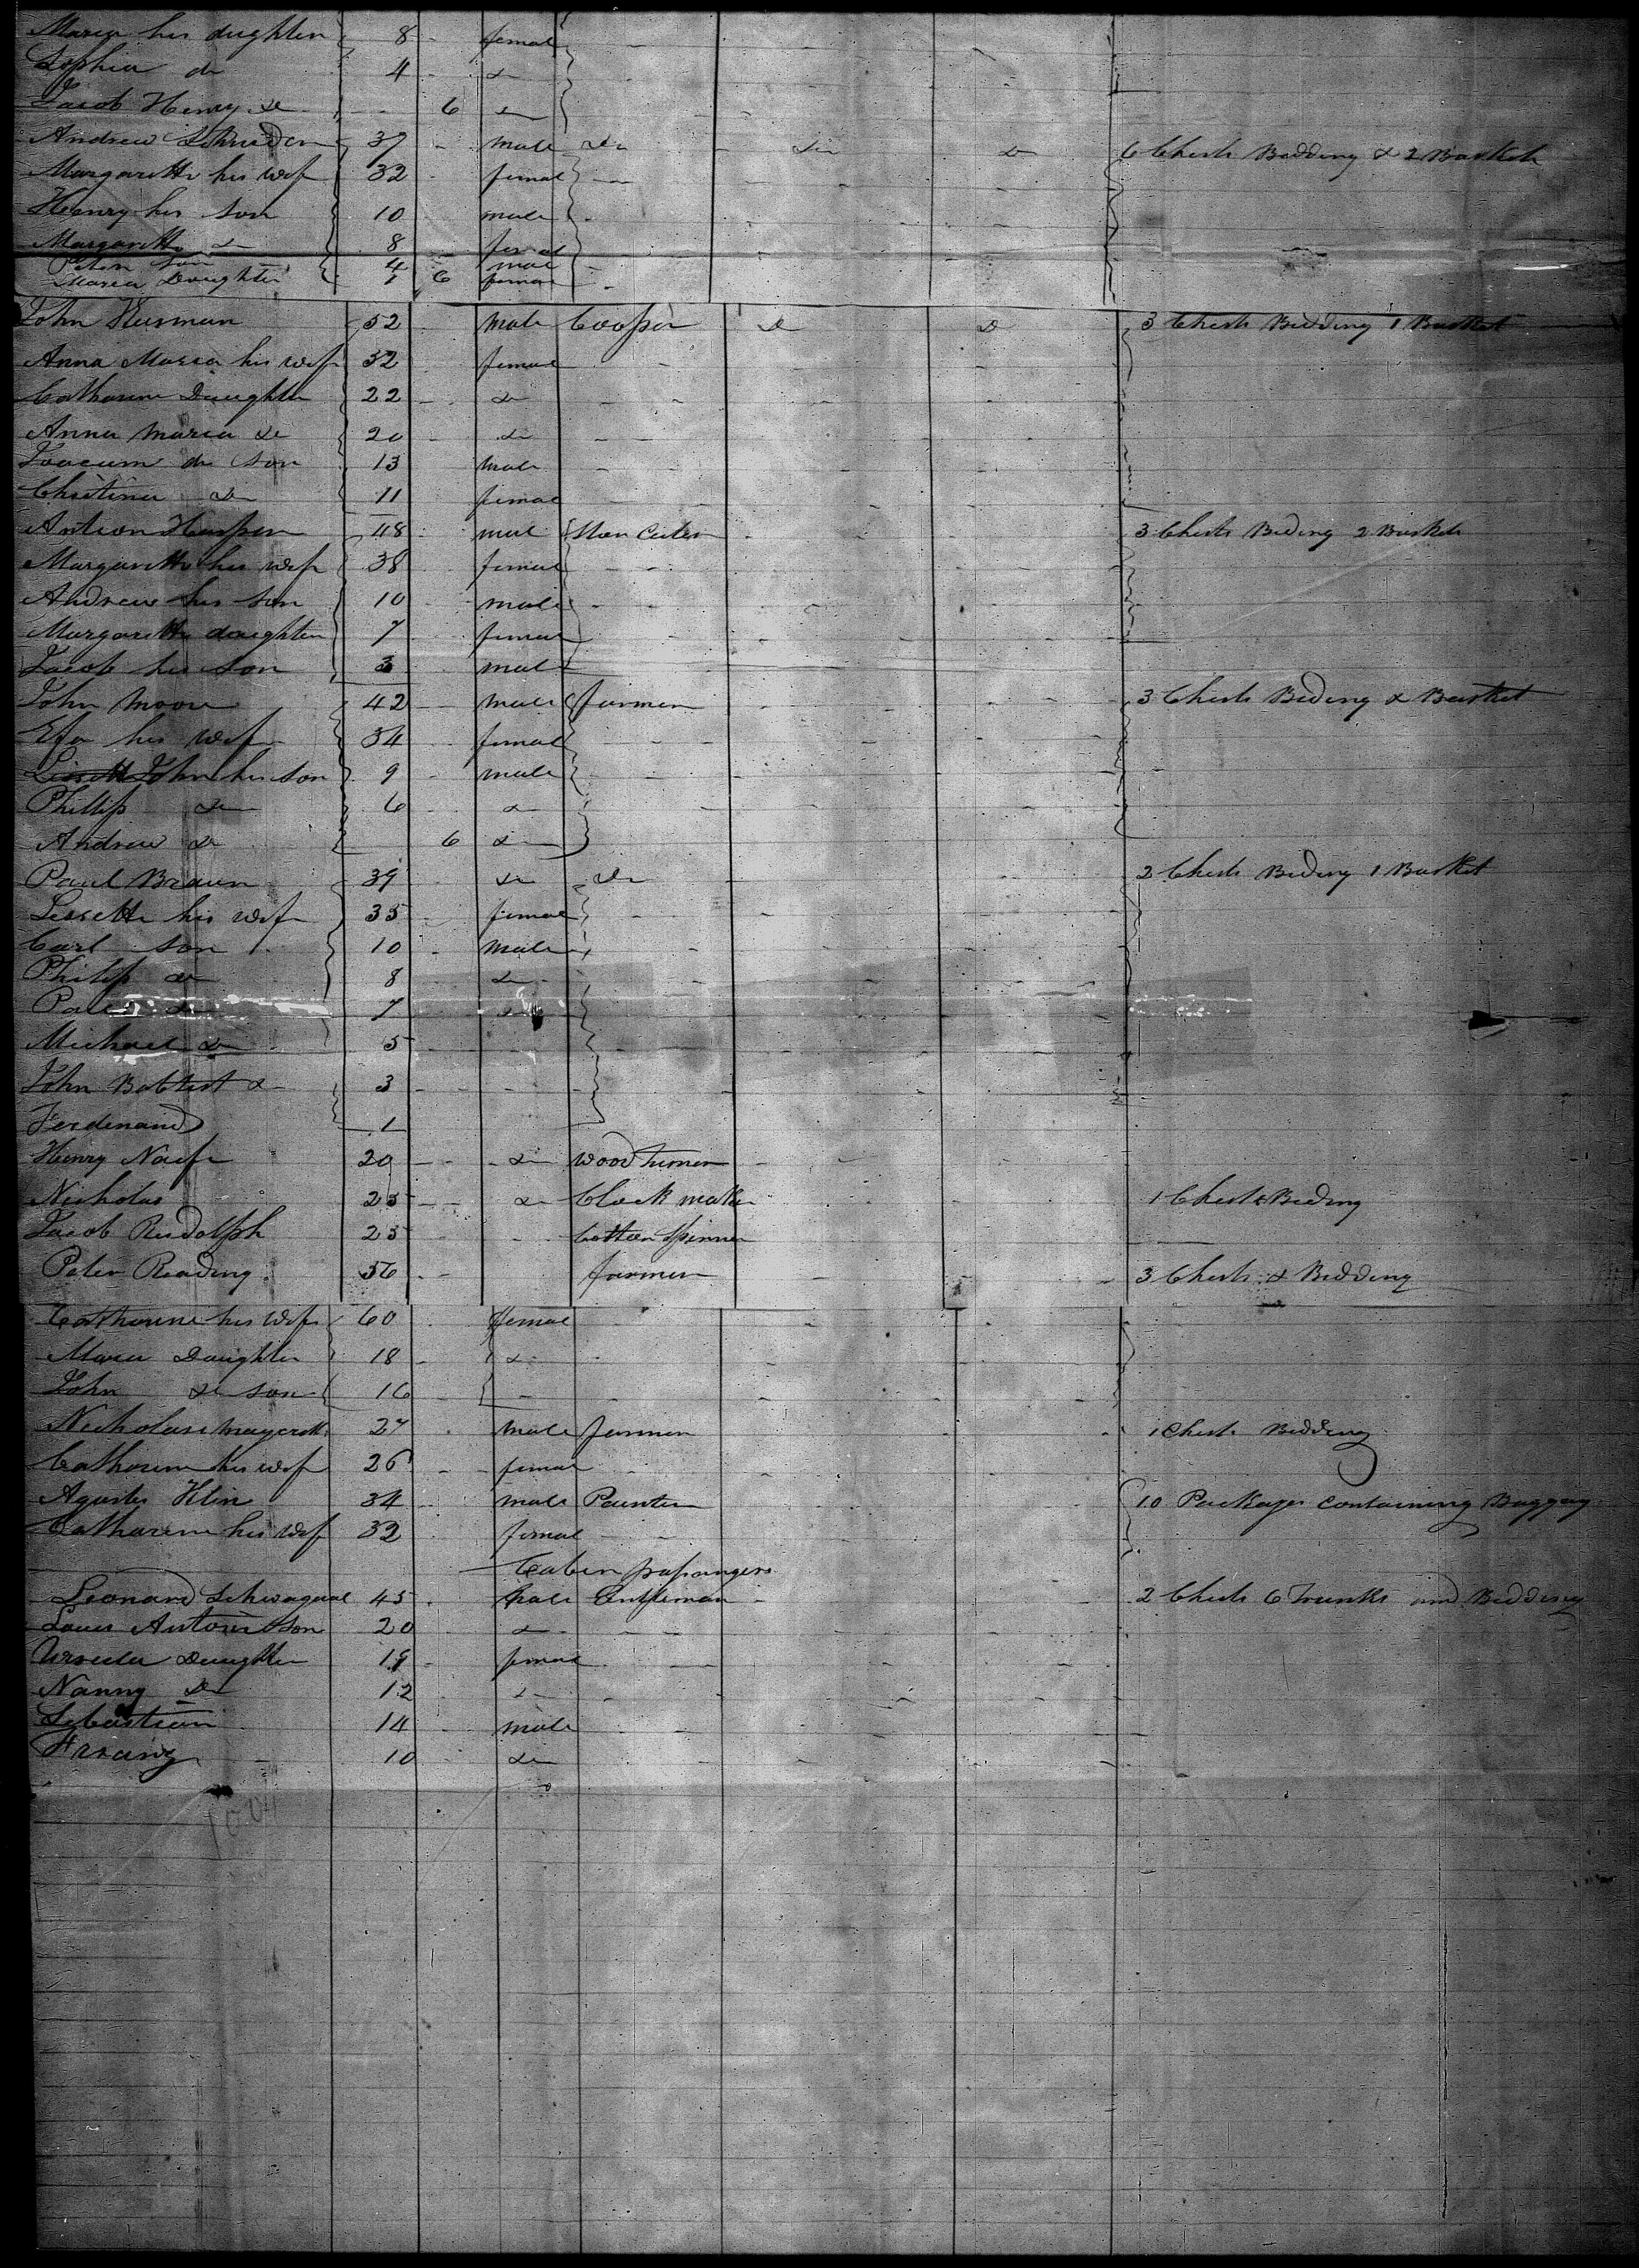 Maria his dughter 8 femal
Sophia do 4 do
Jacob Henry do 6 do
Andrew Schnider 37 male do do do 6 Chests Bedding & 2 Baskets
Margaretta his wif 32 femal
Henry his son 10 male
Margaretta do 8 femal
Peter son 4 male
Maria Daughter 1 6 femal
John Husman 52 male Cooper do do 3 Chests Bedding 1 Basket
Anna Maria his wif 32 femal
Catharine Daughter 22 do
Anna Maria do 20 do
Joacum do son 13 male
Christina do 11 femal
Antson Hasper 48 male Ston Cuter 3 Chests Beding 2 Baskets
Margaretta his wif 38 femal
Andrew his son 10 male
Margaretta daughter 7 femal
Jacob his son 3 male
John Moore 42 male farmer 3 Chests Beding & Basket
Efa his wif 34 femal
John his son 9 male
Phillip do 6 do
Andrew do 6 do
Paul Braun 39 do do 2 Chests Beding 1 Basket
Lissette his wif 35 femal
Carl son 10 male
Philip do 8 do
Paul do 7 do
Michael do 5
John Babtist do 3
Ferdenand 1
Henry Naef 20 do Wood Turner
Nicholas 25 do Clock maker 1 Chest & Beding
Jacob Rudolph 25 Cotton Spinner
Peter Reading 56 farmer 3 Chests & Bedding
Catharine his wif 60 femal
Maria Daughter 18 do
John do son 16
Nicholas 27 male farmer 1 Chest Bedding
Catharine his wif 26 femal
Klin 34 male Painter 10 Packages containing Baggag
Catharine his wif 32 femal
Cabin passangers
Leonard 45 male Gentleman 2 Chests 6 Trunks and Bedding
Louis Antoin son 20 do
Ursula Daughter 19 femal
Nanny do 12 do
Sebastian 14 male
Franz 10 do